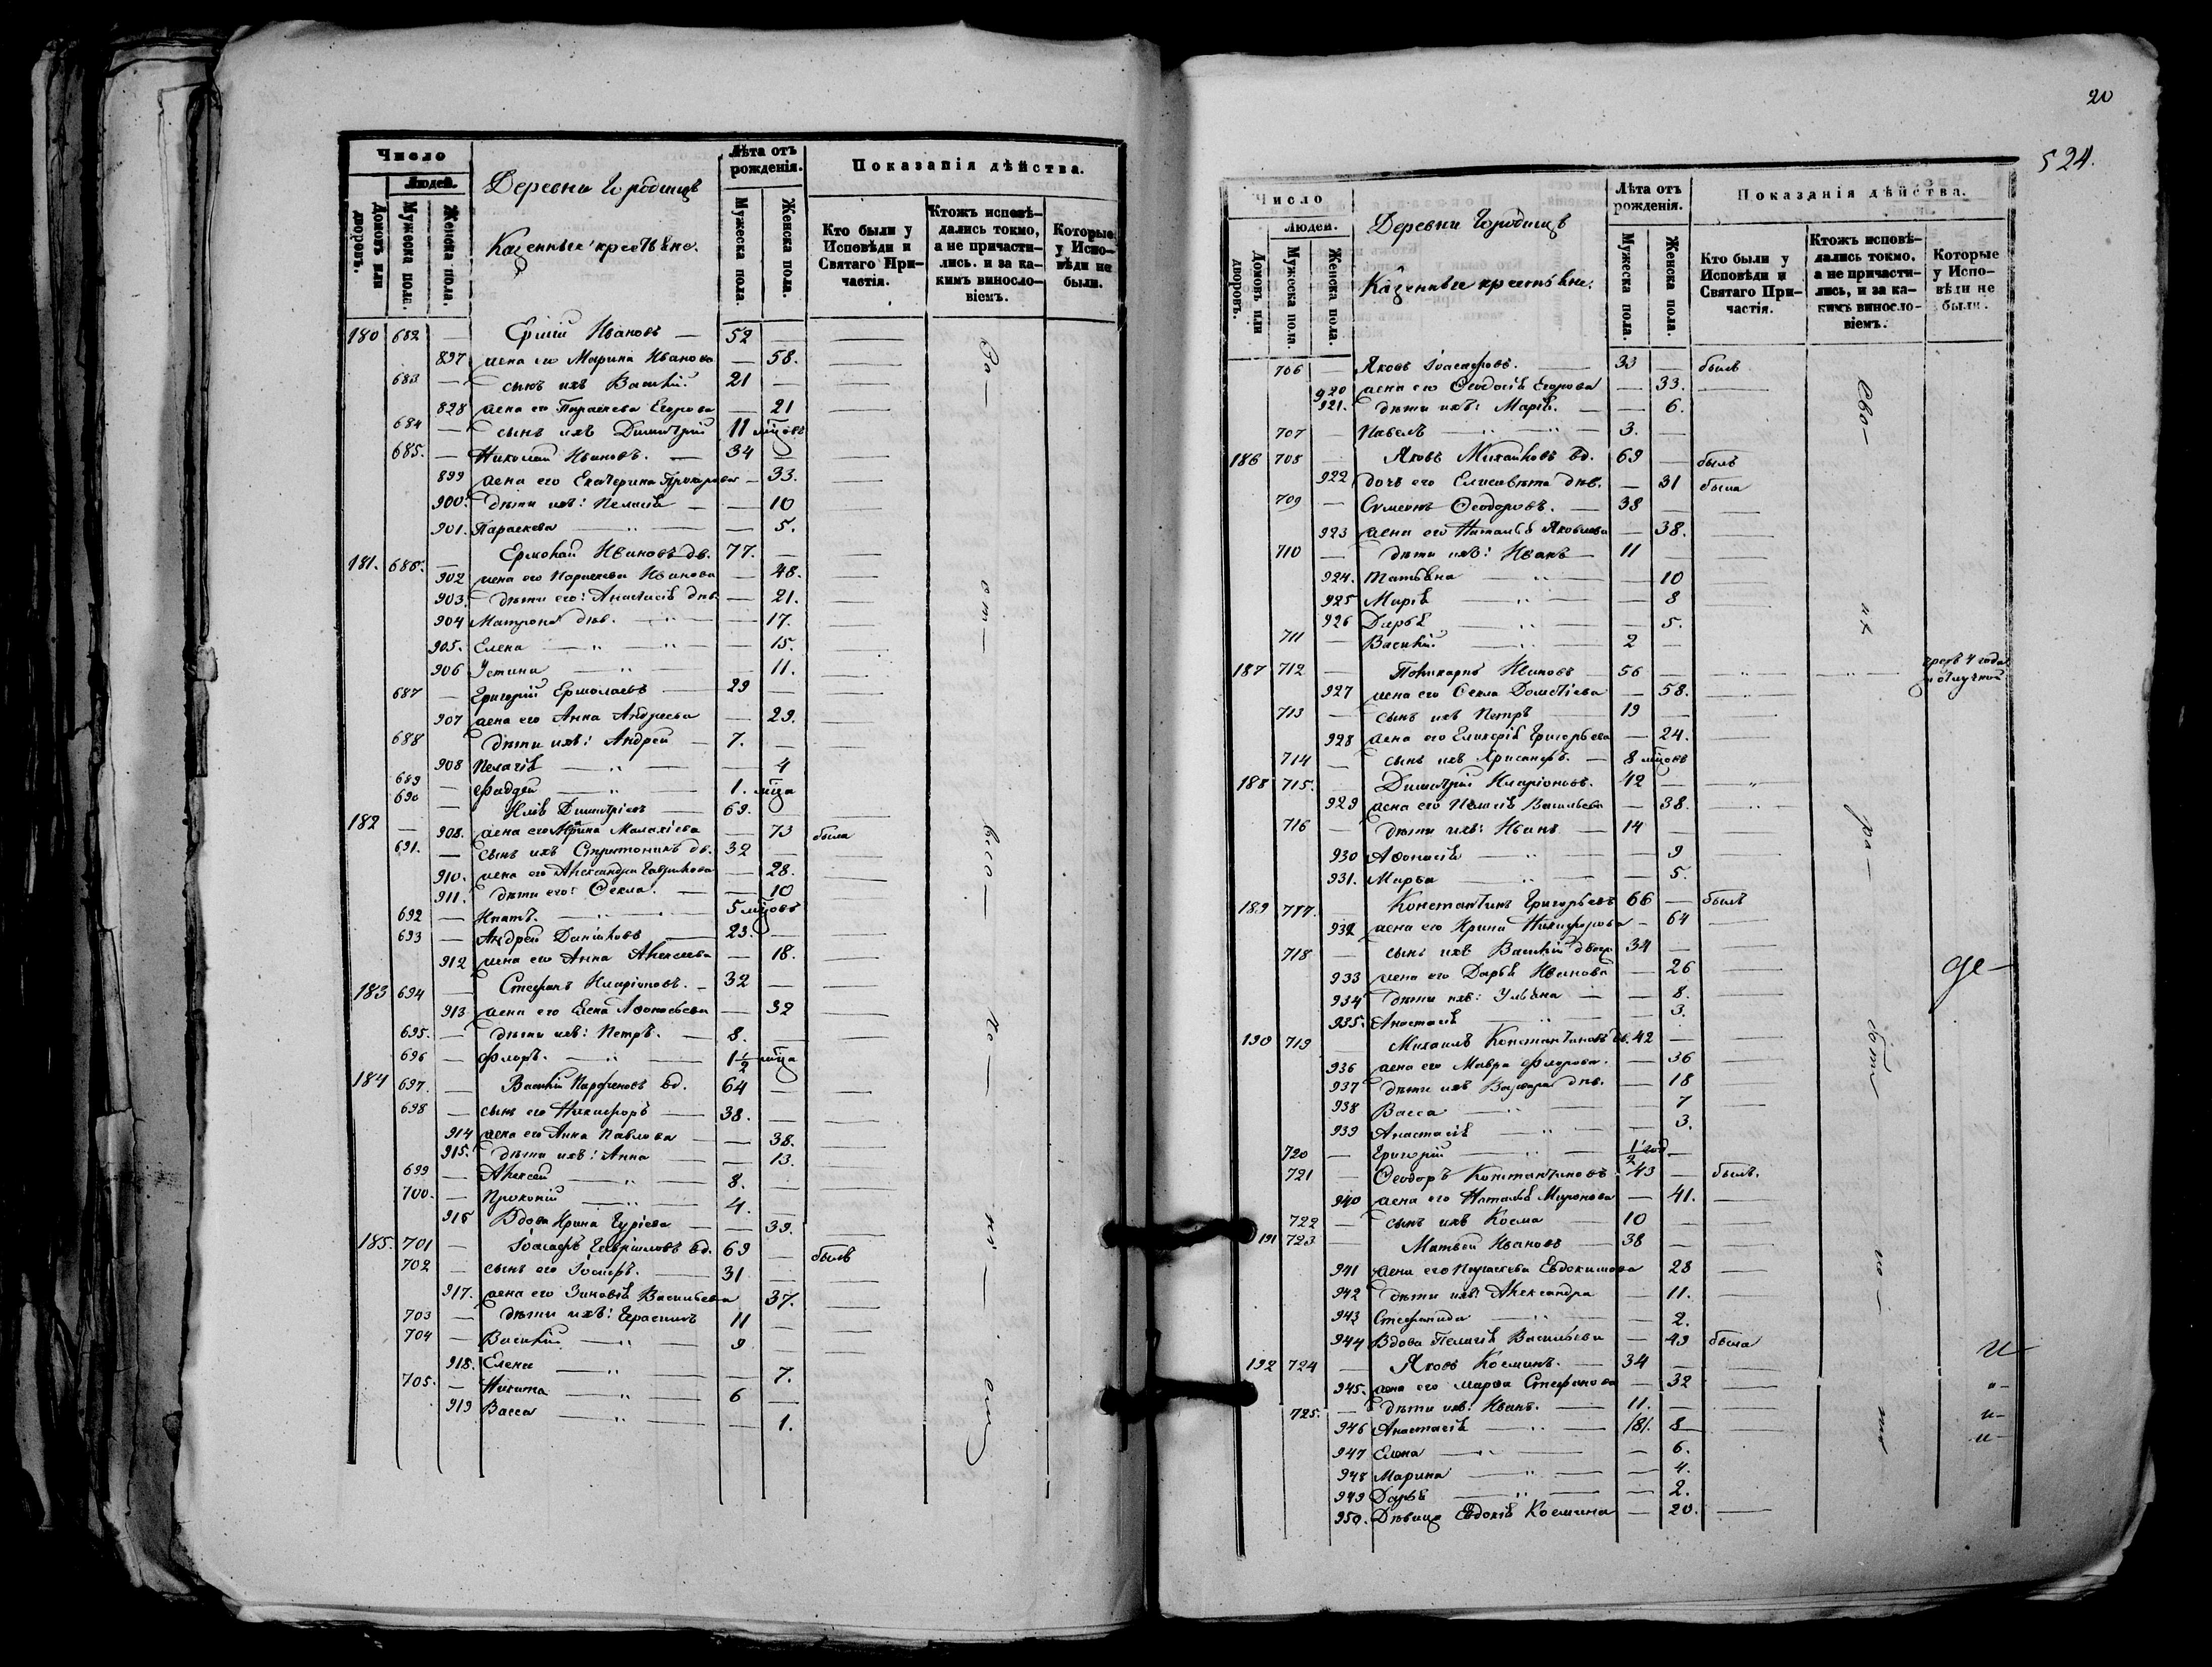 Число
Людей.
Домовъ или дворовъ.
Мужеска пола.
Женска пола.
Деревни Городищъ
Казенные крестьяне.
Лѣта отъ рожденія.
Мужеска пола.
Женска пола.
Показанія дѣйства.
Кто были у Исповѣди и Святаго Причастія.
Ктожъ исповѣдались токмо, а не причастились. и за какимъ винословіемъ.
Которые у Исповѣди не были.
180 682 — Ивановъ — 52 —
897 жена его Марина Иванова — 58.
683 — сынъ ихъ Василій 21 —
828 жена его Параскева Егорова — 21
684 — сынъ ихъ Димитрій 11 мцовъ
685. — Николай Ивановъ. — 34 —
899 жена его Екатерина — 33.
900. дѣти ихъ: Пелагія — — 10
901. Параскева — „ — — 5.
181. 686. — Ермолай Ивановъ дв. 77. —
902 жена его Параскева Иванова — 48.
903. дѣти его: Анастасія двц — 21.
904 Матрона двц. — „ — — 17.
905. Елена — „ — „ — — 15.
906 Устина — „ — — 11.
687 — Григорій Ермолаевъ — 29 —
907 жена его Анна Андреева — 29.
688 дѣти ихъ: Андрей — 7. —
908 Пелагія — „ — — 4
689 — Фаддей — „ — 1. мца
182 690 — Илія Димитріевъ — 69. —
908. жена его Ирина Малахіева — 73 была
691. — сынъ ихъ дв. 32 —
910. жена его Александра Гавриилова — 28.
911. дѣти его: Ѳекла. — — 10
692 — Ипатъ. — „ — 5 мцовъ
693 — Андрей Даниловъ — 23. —
912 жена его Анна Алексеева — 18.
183 694 — Стефанъ Иларіоновъ. — 32 —
913 жена его Елена Аѳонасьева — 32
695. — дѣти ихъ: Петръ. — 8. —
696 — Флоръ. — „ — 1 1/2 мца
184 697. — Василій Парфеновъ вд. 64 —
698 — сынъ его Никифоръ — 38. —
914 жена его Анна Павлова — — 38.
915. дѣти ихъ: Анна — — 13.
699 — Алексей — „ — 8. —
700. — Прокопій — „ — 4. —
916 Вдова Ирина Гуріева — — 39.
185. 701 — Іоасафъ Гавріиловъ вд. 69 — былъ
702 — сынъ его Іосифъ. — 31 —
917. жена его Зиновія Васильева 37.
703 — дѣти ихъ: Герасимъ 11 —
704 — Василій — „ — 9 —
918. Елена — „ — — 7.
705. — Никита — „ — 6 —
919 Васса — „ — — 1.
20
524.
Число
Людей.
Домовъ или дворовъ.
Мужеска пола.
Женска пола.
Деревни Городищъ
Казенные крестьяне.
Лѣта отъ рожденія.
Мужеска пола.
Женска пола.
Показанія дѣйства.
Кто были у Исповѣди и Святаго Причастія.
Ктожъ исповѣдались токмо, а не причастились, и за какимъ винословіемъ.
Которые у Исповѣди не были.
706 — Яковъ Іоасафовъ. — 33 — былъ
920 жена его Ѳеодосія Егорова — 33.
921. дѣти ихъ: Марія. — — 6.
707 — Павелъ — „ — „ — 3. —
186 708 — Яковъ Михайловъ вд. 69 — былъ
922 дочь его Елисавета двц. — 31 была
709 — Сумеонъ Ѳеодоровъ. — 38 —
923 жена его Наталія Яковлева — 38.
710 — дѣти ихъ: Иванъ — 11 —
924. Татьяна — „ — — 10
925 Марія — „ — — 8
926 Дарья — „ — — 5.
711 — Василій. — „ — 2 —
187 712 — Поликарпъ Ивановъ — 56 —
927 жена его Ѳекла Дометіева — 58.
713 — сынъ ихъ Петръ 19 —
928 жена его Гликерія Григорьева — 24.
714 — сынъ ихъ Хрисанфъ. — 8 мцовъ
188 715. — Димитрій Иларіоновъ. 42 —
929 жена его Пелагія Васильева — 38.
716 — дѣти ихъ: Иванъ — 14 —
930 Аѳонасія — „ — — 9
931. Марѳа — „ — — 5.
189 717. Константинъ Григорьевъ 66 — былъ
932 жена его Ирина Никифорова — 64
718 — сынъ ихъ Василій 34 —
933 жена его Дарья Иванова — 26
934 дѣти ихъ: Ульяна — — 8.
935. Анастасія — „ — — 3.
190 719 — Михаилъ Константиновъ 42 —
936 жена его Мавра Флорова. — 36
937 дѣти ихъ Варвара двц. — 18
938 Васса — „ — — 7
939 Анастасія — „ — — 3.
720 — Григорій — „ — 1/2 год —
721 — Ѳеодоръ Константиновъ. 43 — былъ.
940 жена его Наталія Миронова — 41.
722 — сынъ ихъ Косма — 10 —
191 723 — Матвей Ивановъ — 38 —
941 жена его Параскева Евдокимова 28
942 дѣти ихъ: Александра — 11.
943 Стефанида — „ — — 2.
944 Вдова Пелагія Васильева — 49 была
192 724 — Яковъ Косминъ. — 34 —
945. жена его Марѳа Стефанова — 32
725. — дѣти ихъ: Иванъ. — 11. —
946 Анастасія — „ — 8
947 Елена — „ — — 6.
948 Марина — „ — — 4.
949 Дарья — „ — — 2.
950. Дѣвица Евдокія Космина — 20.